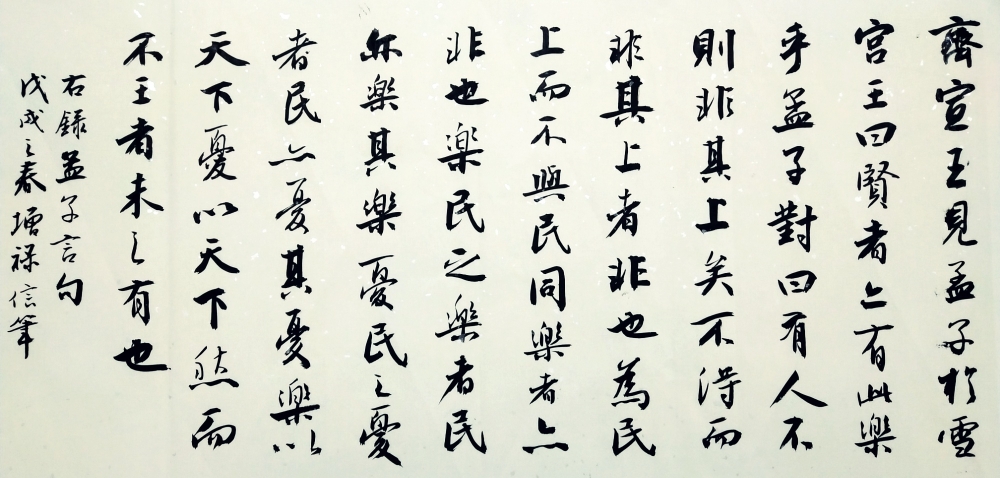 齊宣王見孟子於雪
宮王曰賢者亦有此樂
乎孟子對曰有人不
則非其上矣不得而
非其上者非也為民
上而不與民同樂者亦
非也樂民之樂者民
亦樂其樂憂民之憂
者民亦憂其憂樂以
天下憂以天下然而
不王者未之有也
右錄孟子言句
戊戌之春增禄信筆